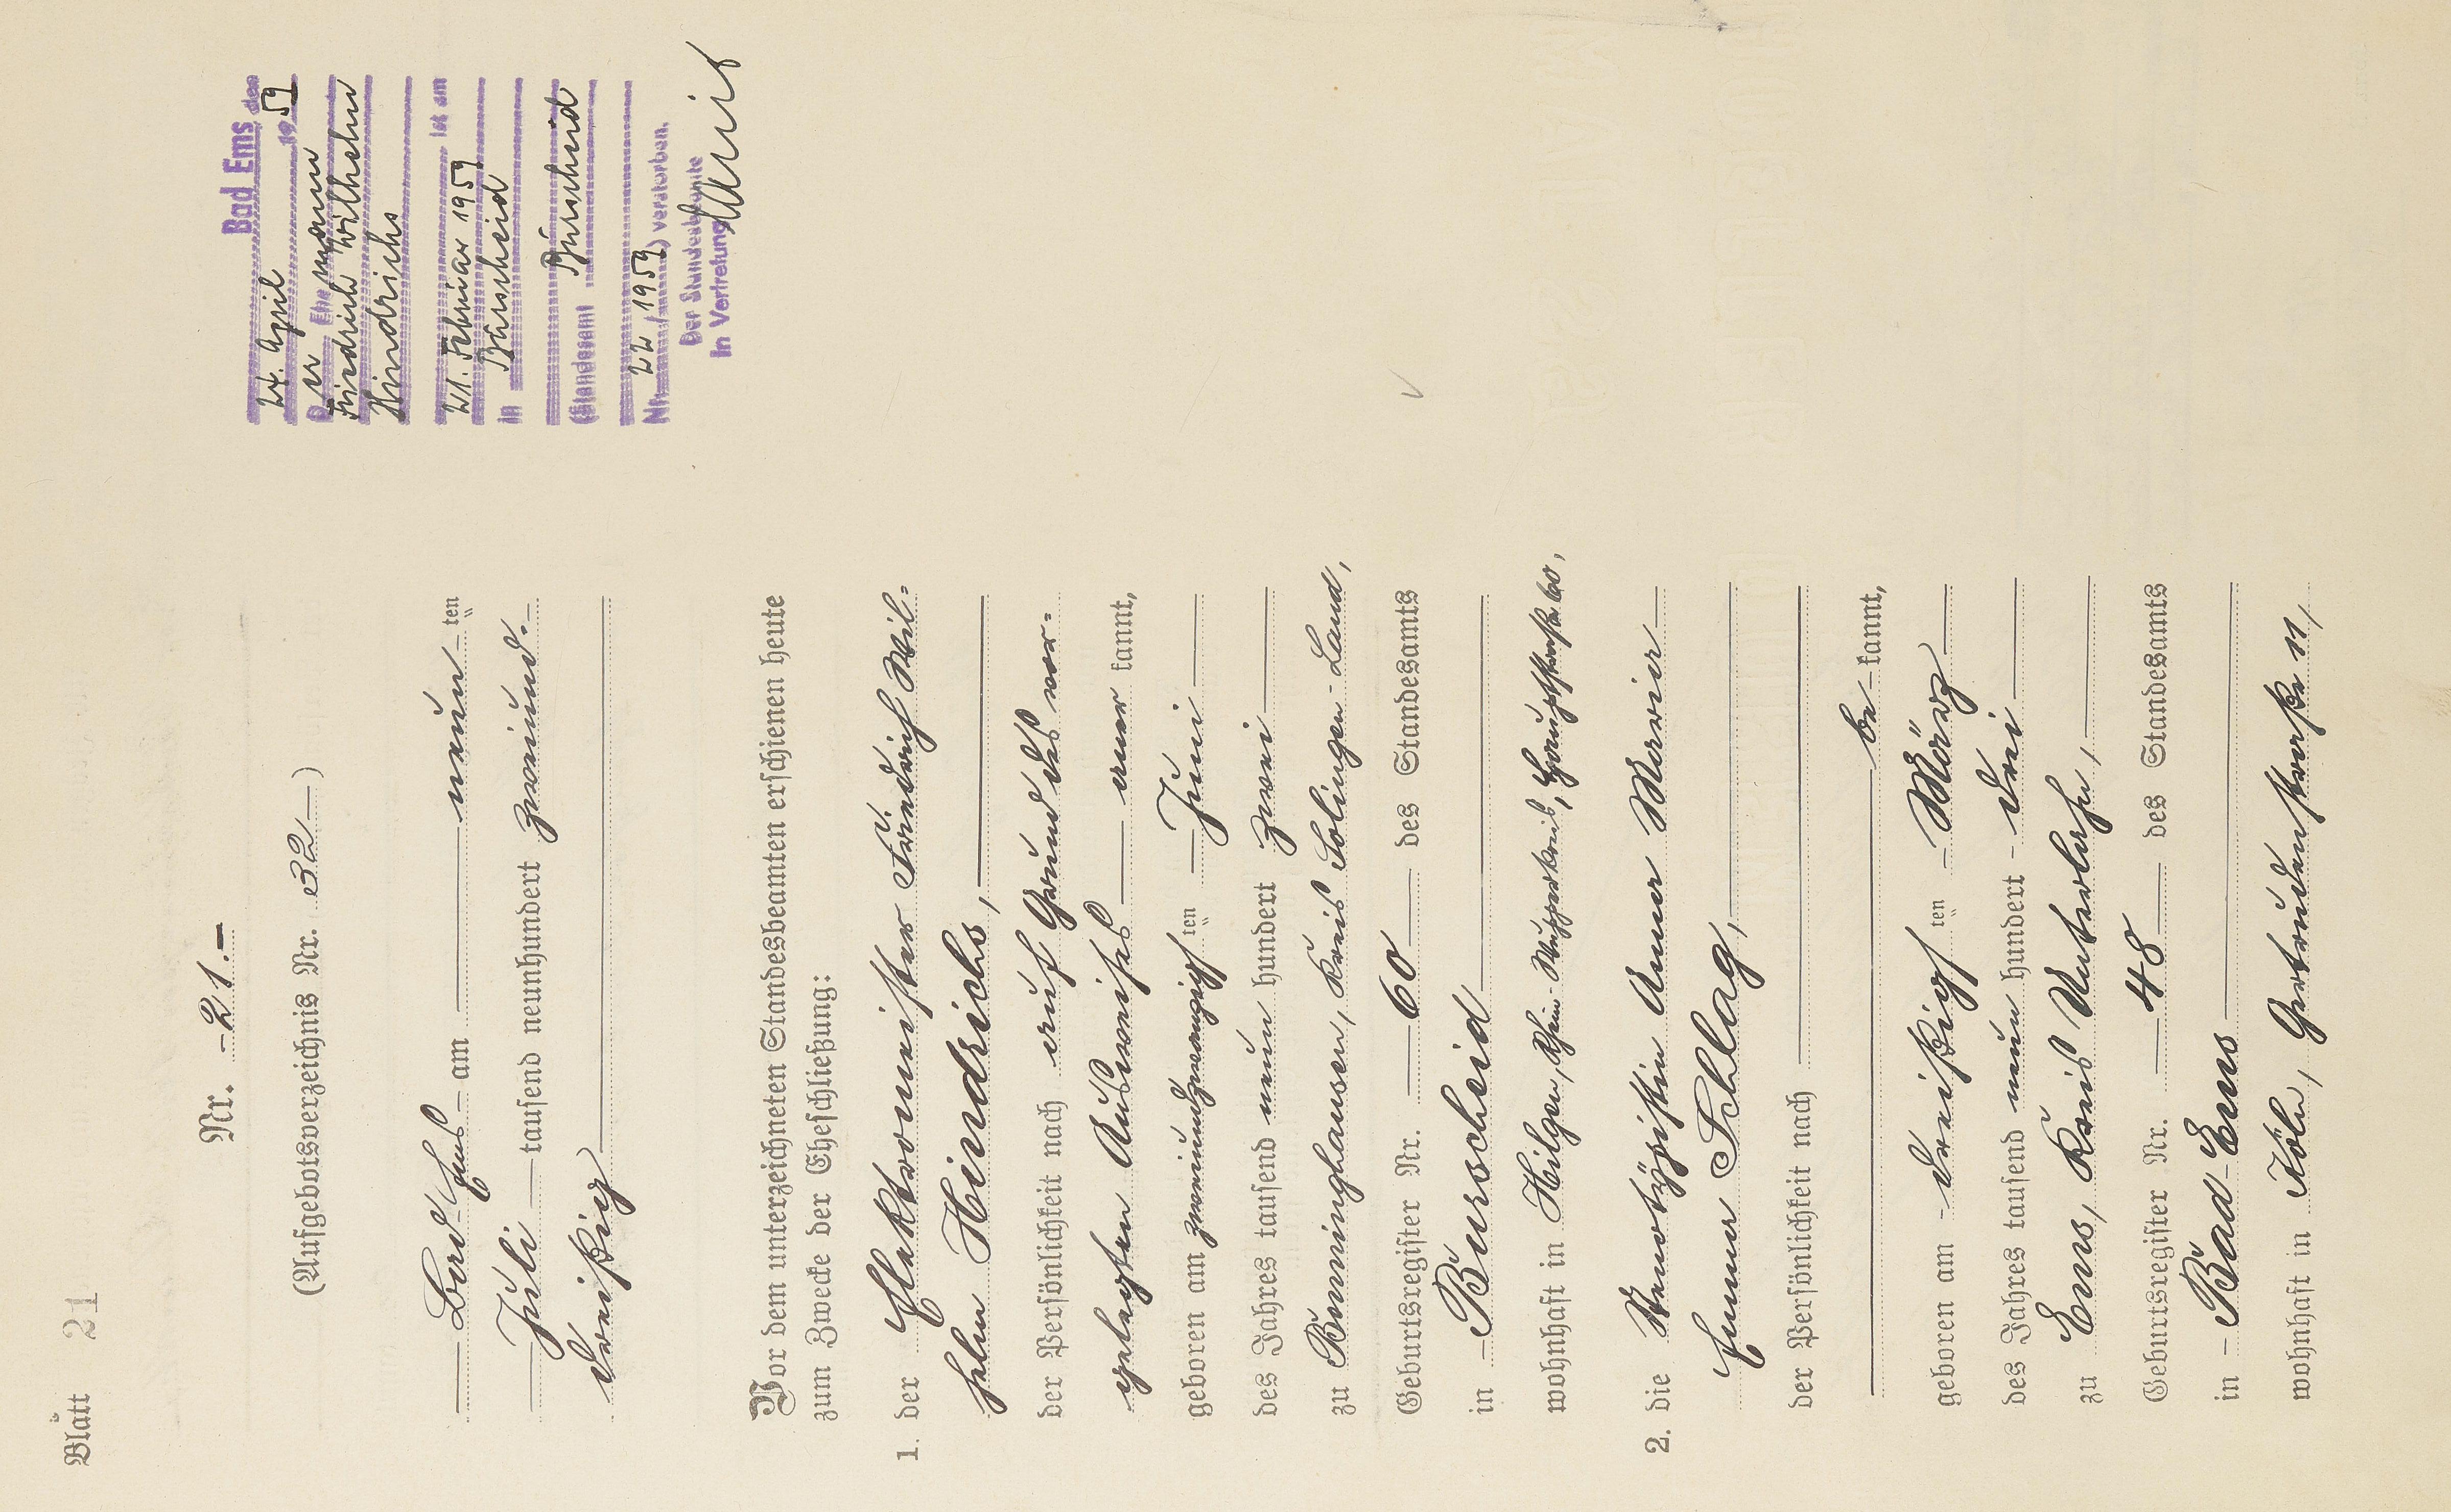 Blatt 21
Nr. 21.
(Aufgebotsverzeichnis Nr. 32)
Bad-Ems am neun ten
Juli tausend neunhundert zweiund-
dreißig
Vor dem unterzeichneten Standesbeamten erschienen heute
zum Zwecke der Eheschließung:
1. der Elektromeister Friedrich Wil-
helm Hindrichs,
der Persönlichkeit nach auf Grund des vor-
gelegten Ausweises aner kannt,
geboren am zweiundzwanzigsten Juni
des Jahres tausend neun hundert zwei
zu Benninghausen, Kreis Solingen-Land,
Geburtsregister Nr. 60 des Standesamts
in Burscheid
wohnhaft in Hilgen, Rhein-Wupperkreis, Hauptstraße 60,
2. die Stenotypistin Anna Maria
Emma Schlag,
der Persönlichkeit nach
be kannt,
geboren am dreißigsten März
des Jahres tausend neun hundert drei
zu Ems, Kreis Unterlahn,
Geburtsregister Nr. 48 des Standesamts
in Bad-Ems
wohnhaft in Köln, Gertrudenstraße 11,
Bad Ems, den
24. April 1959
Der Ehemann
Friedrich Wilhelm
Hindrichs
ist am
21. Februar 1959
in Burscheid
(Standesamt Burscheid
Nr. 22/1959) verstorben.
Der Standesbeamte
In Vertretung